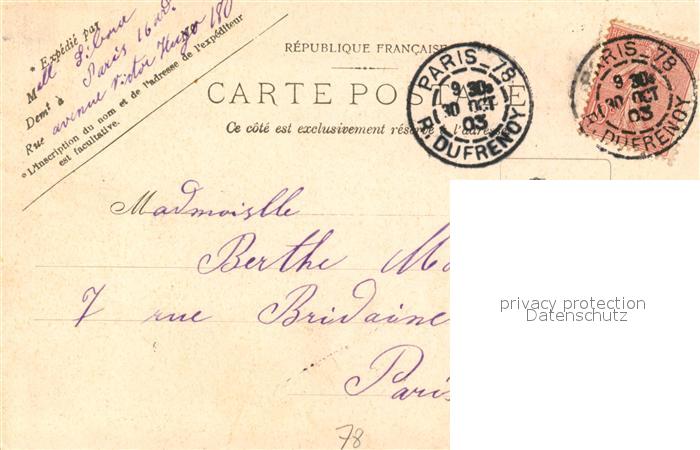 * Expédié par
Mell
Demt à Paris 16
Rue avenue Victor Hugo 180
* L'Inscription du nom et de l'adresse de l'expéditeur
est facultative.
RÉPUBLIQUE FRANÇAISE
CARTE POSTALE
Ce côté est exclusivement réservé à l'adresse
PARIS_78
9 30
30 OCT
03
R. DUFRENOY
PARIS_78
9 30
30 OCT
03
R. DUFRENOY
Madmoislle
Berthe
7 rue Bridaine
Paris
privacy protection
Datenschutz
78